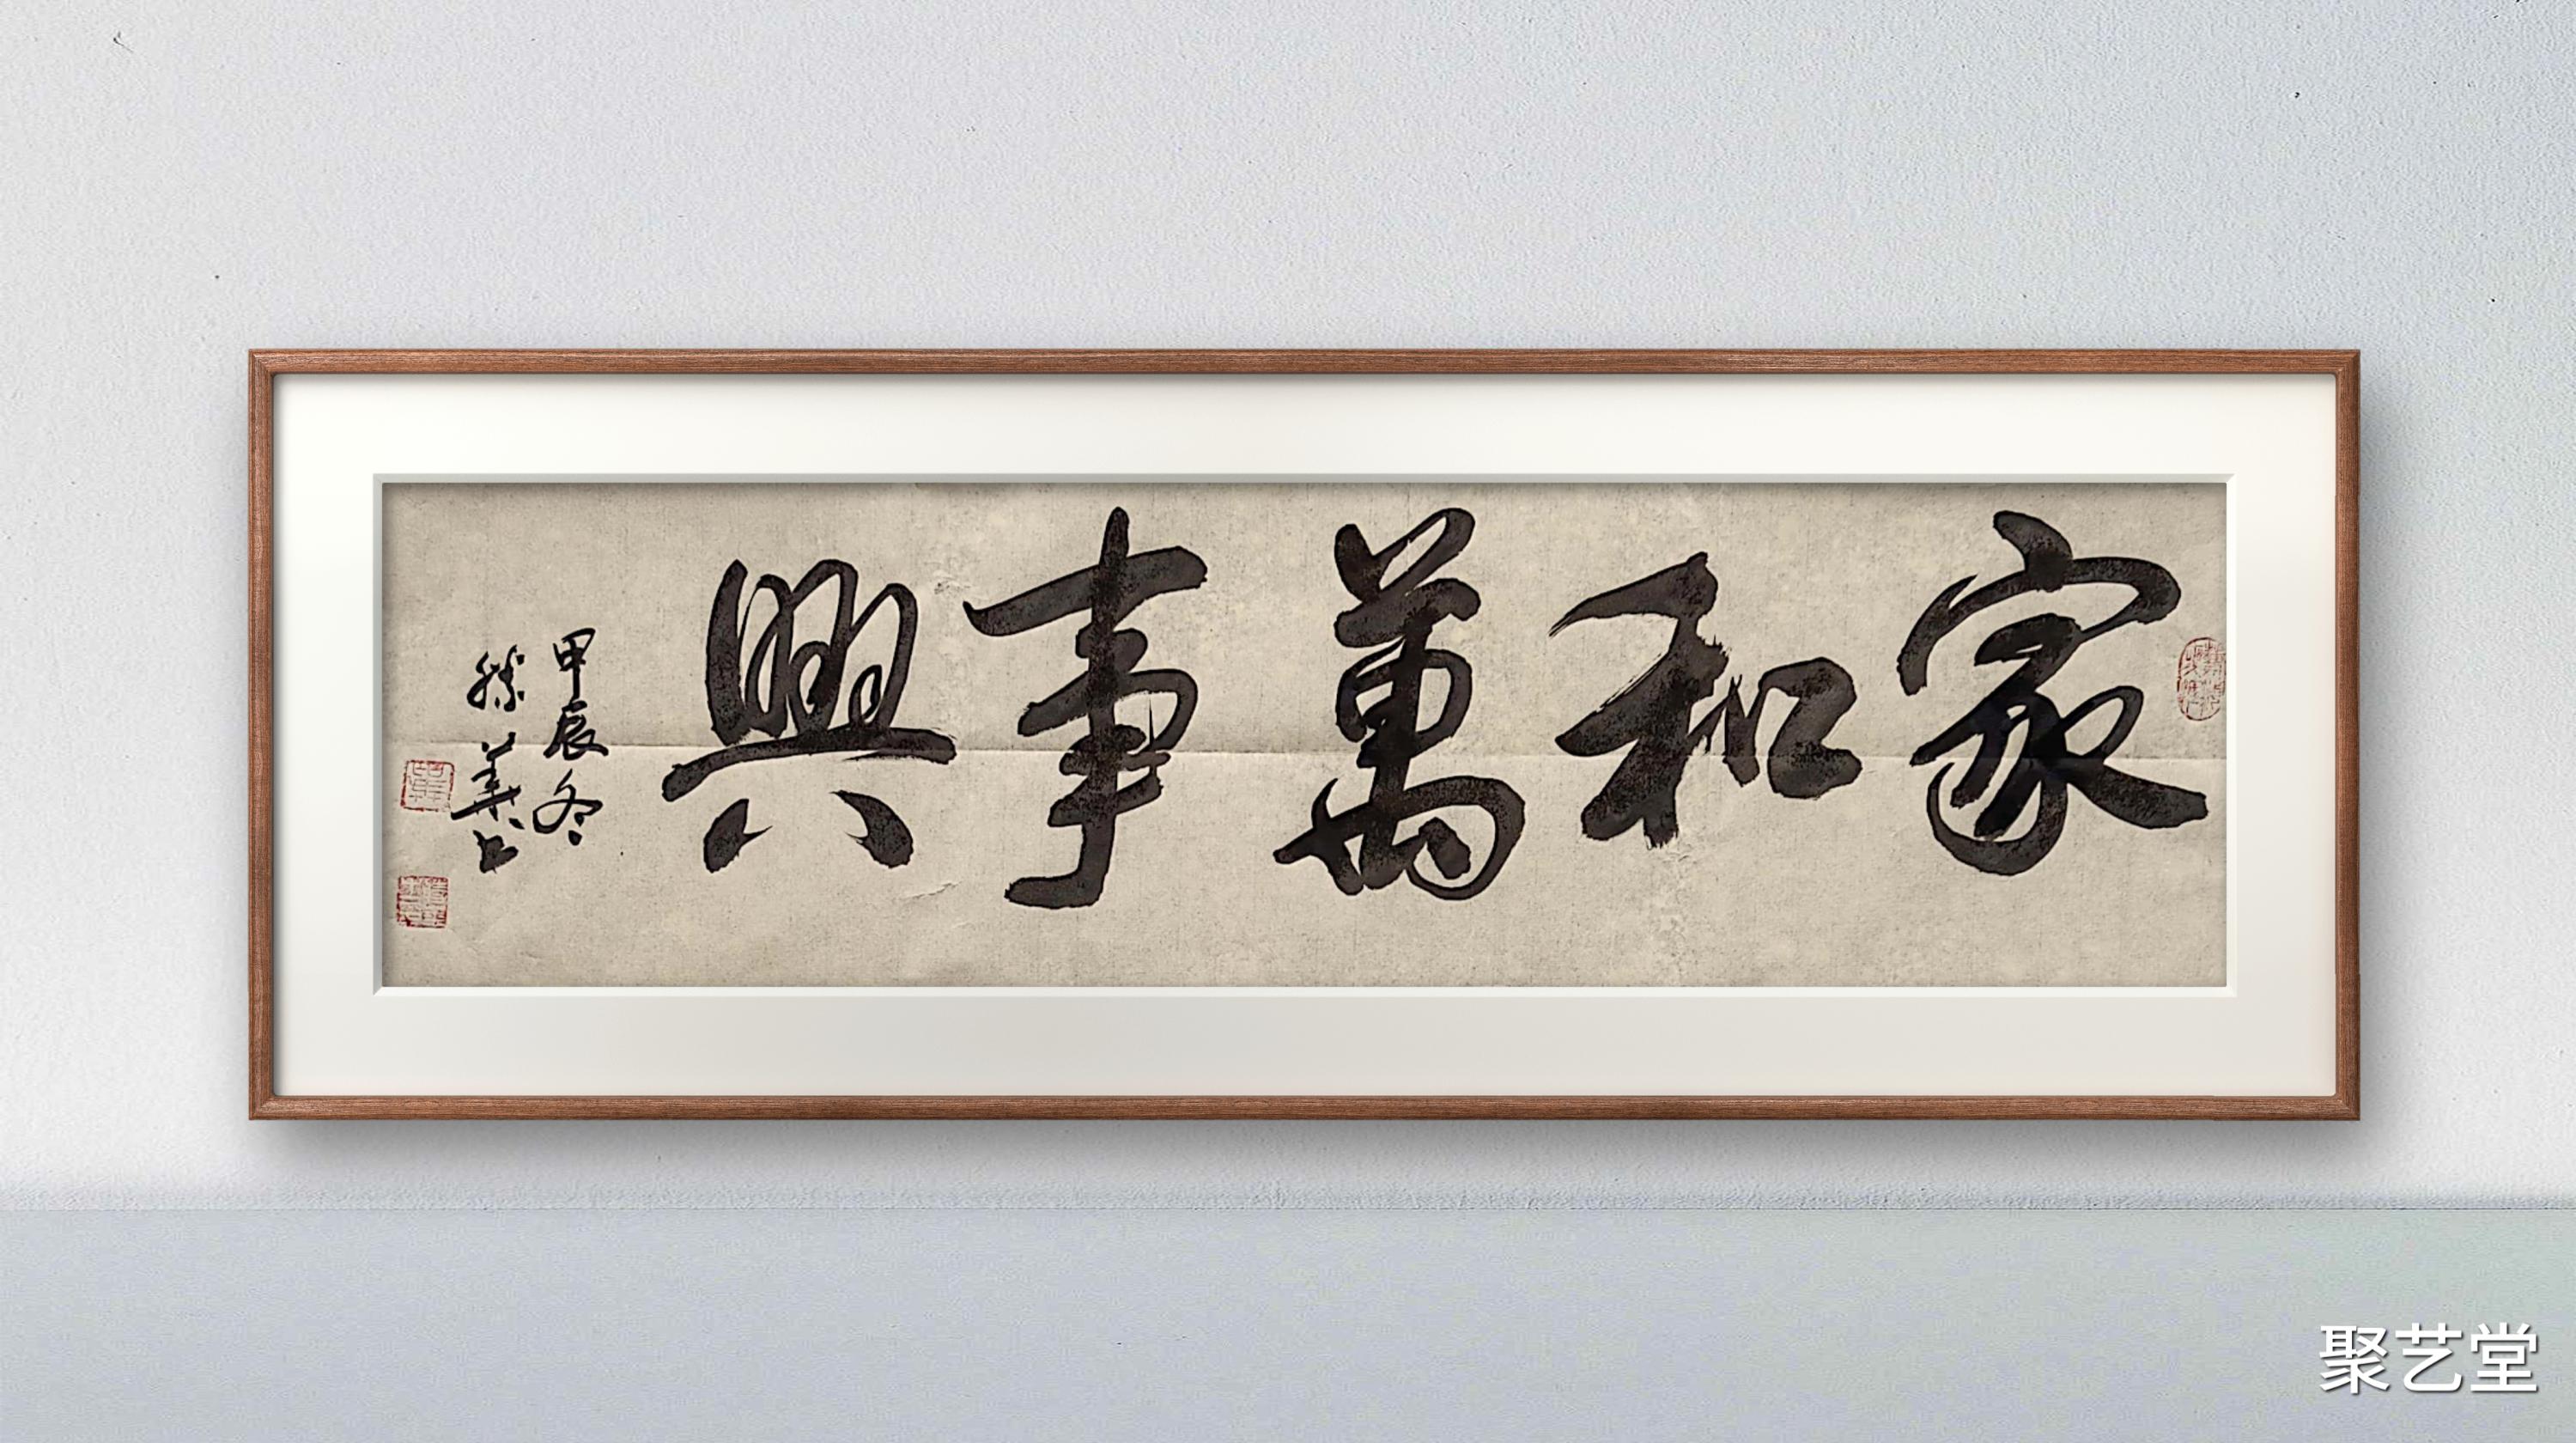 家和萬事興
甲辰冬
聚艺堂